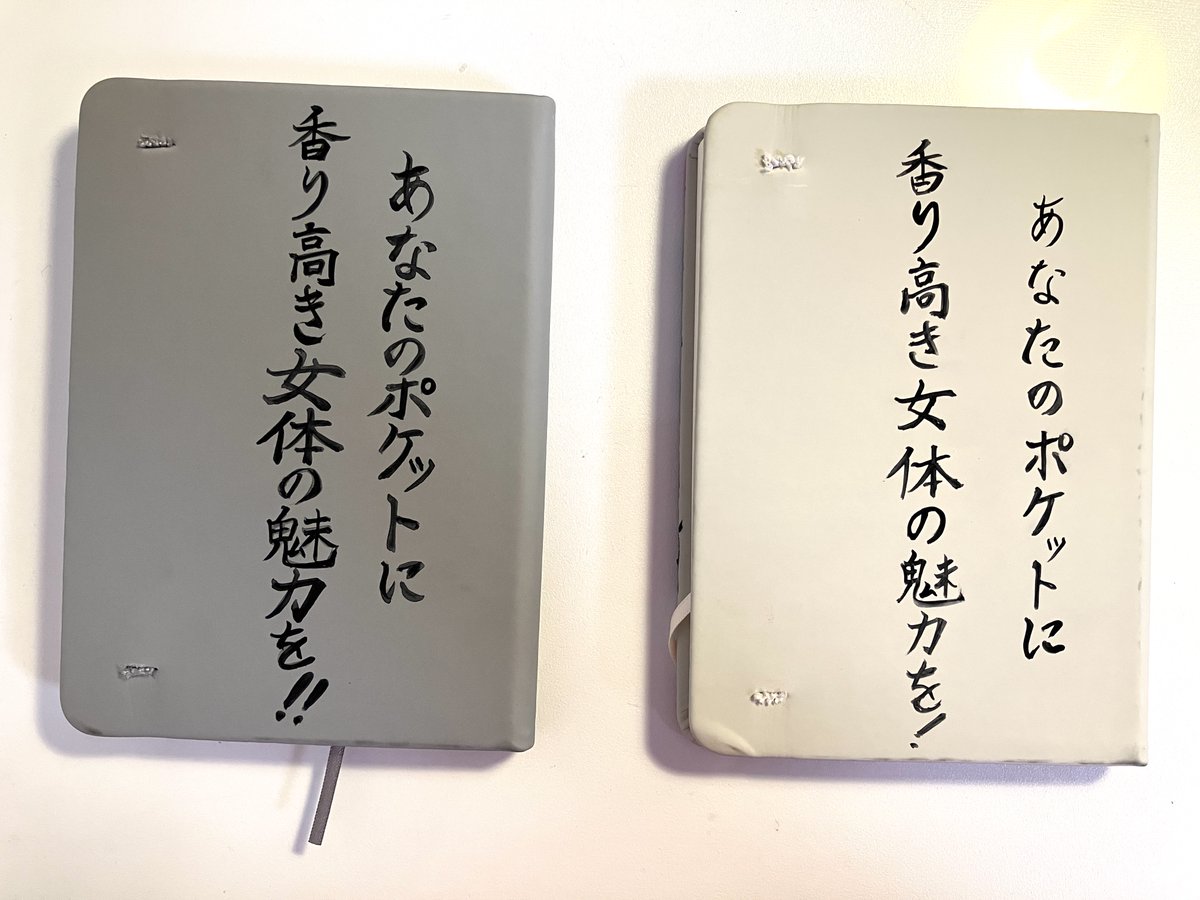 あなたのポケットに
香り高き女体の魅力を!!
あなたのポケットに
香り高き女体の魅力を!